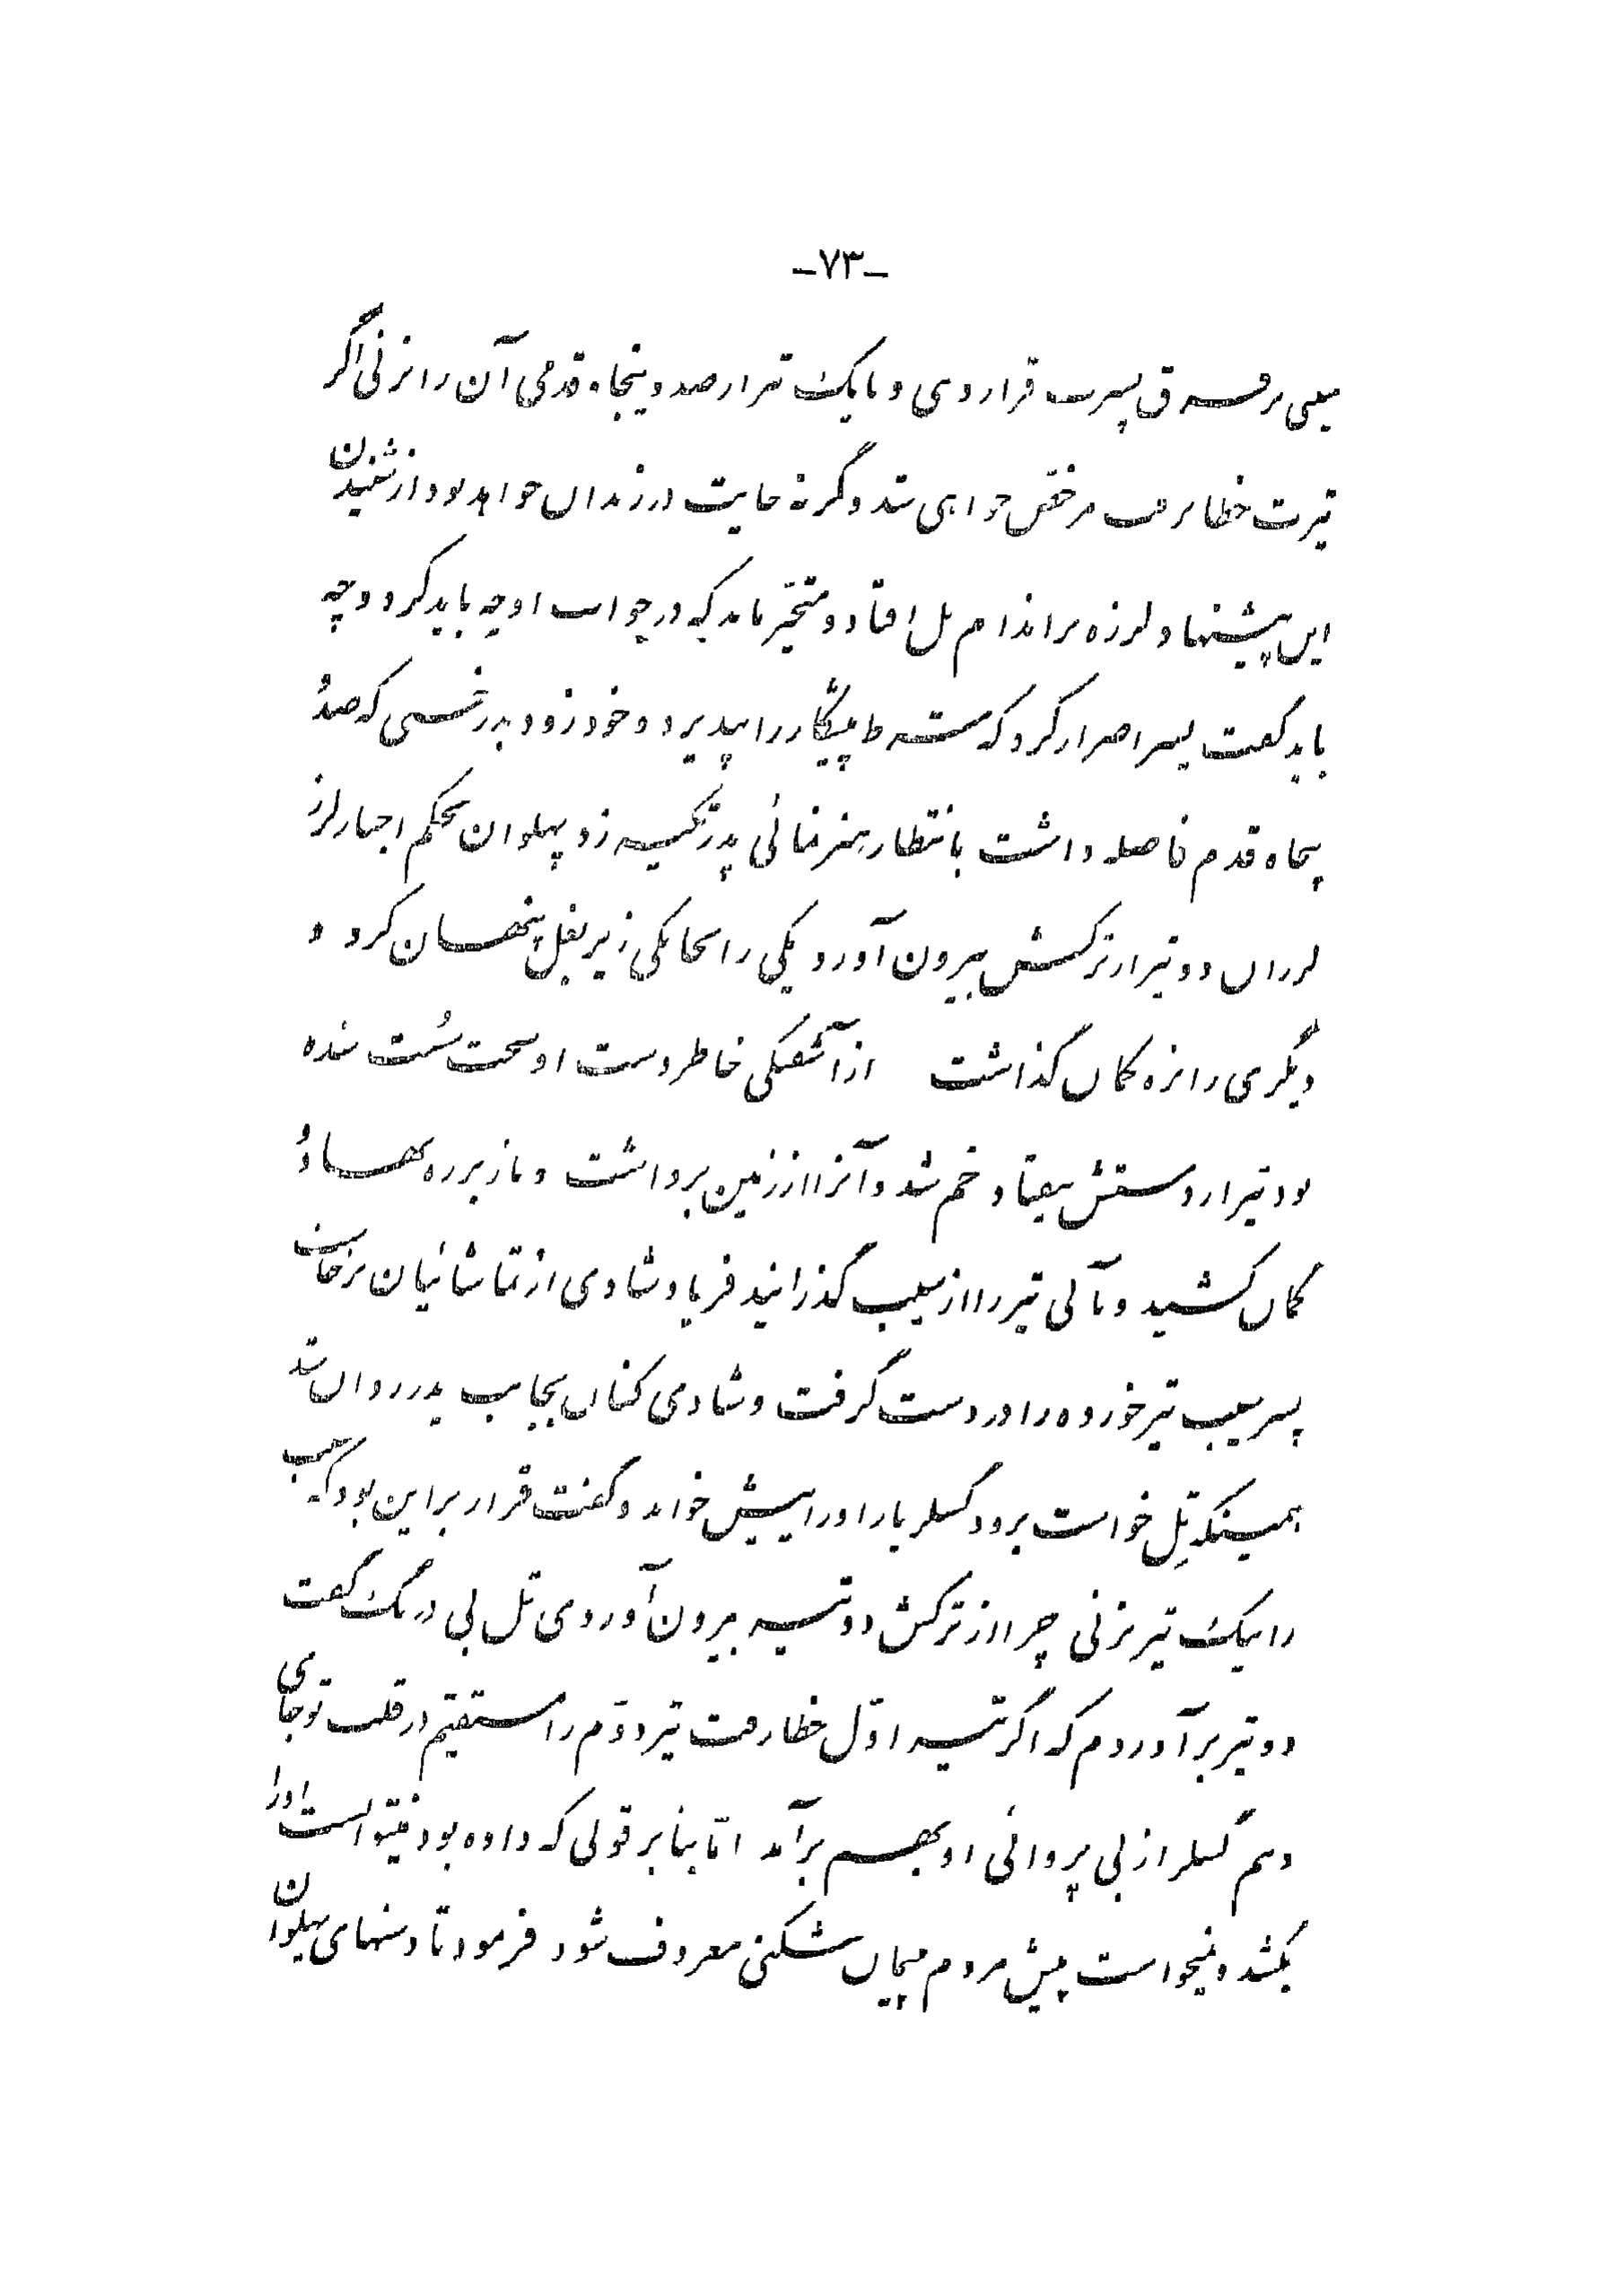 -۷۳-
سیبی بر فرق پسرت قرار دهی و با یک تیر از صد و پنجاه قدمی آن را بزنی اگر
تیرت خطا نرفت مرخص خواهی شد و گرنه جایت در زندان خواهد بود از شنیدن
این پیشنهاد لرزه بر اندام تل افتاد و متحیر ماند که در جواب او چه باید کرد و چه
باید گفت پسر اصرار کرد که شرط پیکار را بپذیرد و خود زود بدرختی که صد و
پنجاه قدم فاصله داشت بانتظار هنرنمائی پدر تکیه زد پهلوان بحکم اجبار لرز
لرزان دو تیر از ترکش بیرون آورد یکی را بچابکی زیر بغل پنهان کرد و
دیگری را بزه کمان گذاشت از آشفتگی خاطر دست او سخت سُست شده
بود تیر از دستش بیفتاد خم شد و آنرا از زمین برداشت و باز بر زه نهاد و
کمان کشید و بآنی تیر را از سیب گذرانید فریاد شادی از تماشائیان برخاست
پسر سیب تیر خورده را در دست گرفت و شادی کنان بجانب پدر روان شد
همینکه تِل خواست برود گسلر یارا او را پیش خواند و گفت قرار بر این بود که سیب
را بیک تیر بزنی چرا از ترکش دو تیر بیرون آوردی تل بی درنگ گفت
دو تیر بر آوردم که اگر تیر اوّل خطا رفت تیر دوّم را مستقیم در قلب تو جای
دهم گسلر از بی پروائی او بهم برآمد امّا بنابر قولی که داده بود نمیتوانست او را
بکشد و نمیخواست پیش مردم بپیمان شکنی معروف شود فرمود تا دستهای پهلوان